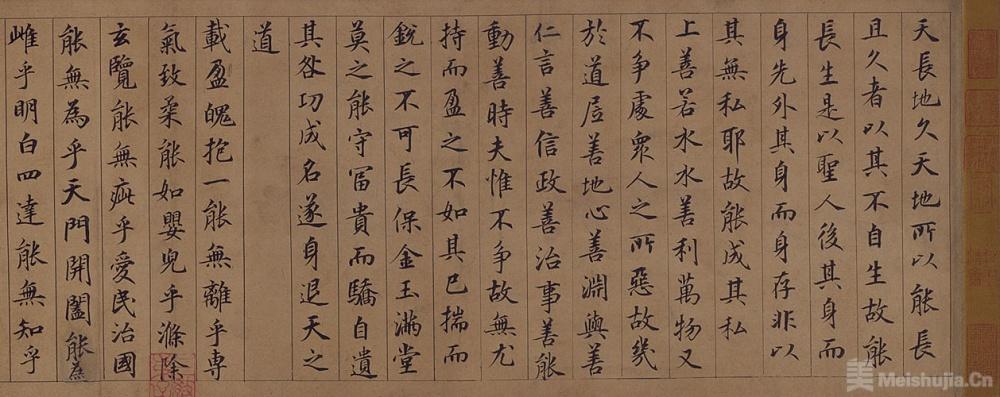 天長地久天地所以能長
且久者以其不自生故能
長生是以聖人後其身而
身先外其身而身存非以
其無私耶故能成其私
上善若水水善利萬物又
不争處衆人之所惡故幾
於道居善地心善渊與善
仁言善信政善治事善能
動善時夫惟不争故無尤
持而盈之不如其已揣而
銳之不可長保金玉滿堂
莫之能守富貴而驕自遺
其咎功成名遂身退天之
道
載盈魄抱一能無離乎専
氣致柔能如嬰兒乎滌除
玄覽能無疵乎愛民治國
能無為乎天門開闔能為
雌乎明白四達能無知乎
美 Meishujia.Cn